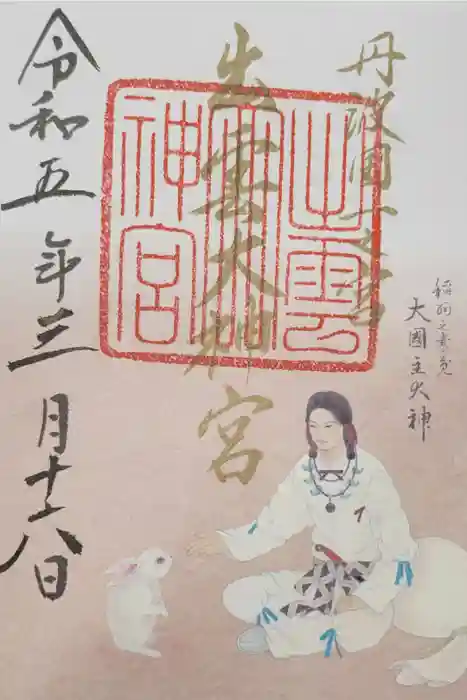 丹波國一之宮
稲羽之素兎
大國主大神
出雲大神宮
出雲大神宮
令和五年三月十八日